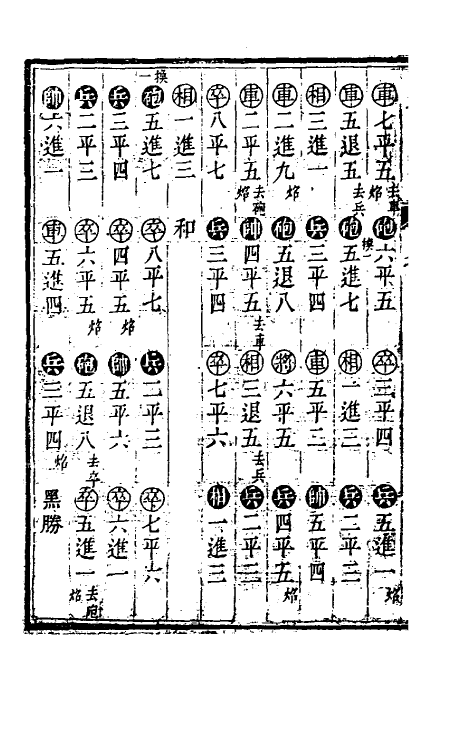 車七平五去車炤 砲六平五 卒三平四 兵五進一炤
車五退五去兵 砲五進七換一 相一進三 兵二平三
相三進一 兵三平四 車五平二 帥五平四
車二進九炤 砲五退八 將六平五 兵四平五炤
車二平五去砲炤 帥四平五去車 相三退五去兵 兵二平三
卒八平七 兵三平四 卒七平六 相一進三
相一進三 和
砲五進七換一 卒八平七 兵二平三 卒七平六
兵三平四 卒四平五炤 帥五平六 卒六進一
兵二平三 卒六平五炤 砲五退八去卒 卒五進一去砲炤
帥六進一 車五進四 兵三平四炤 黑勝